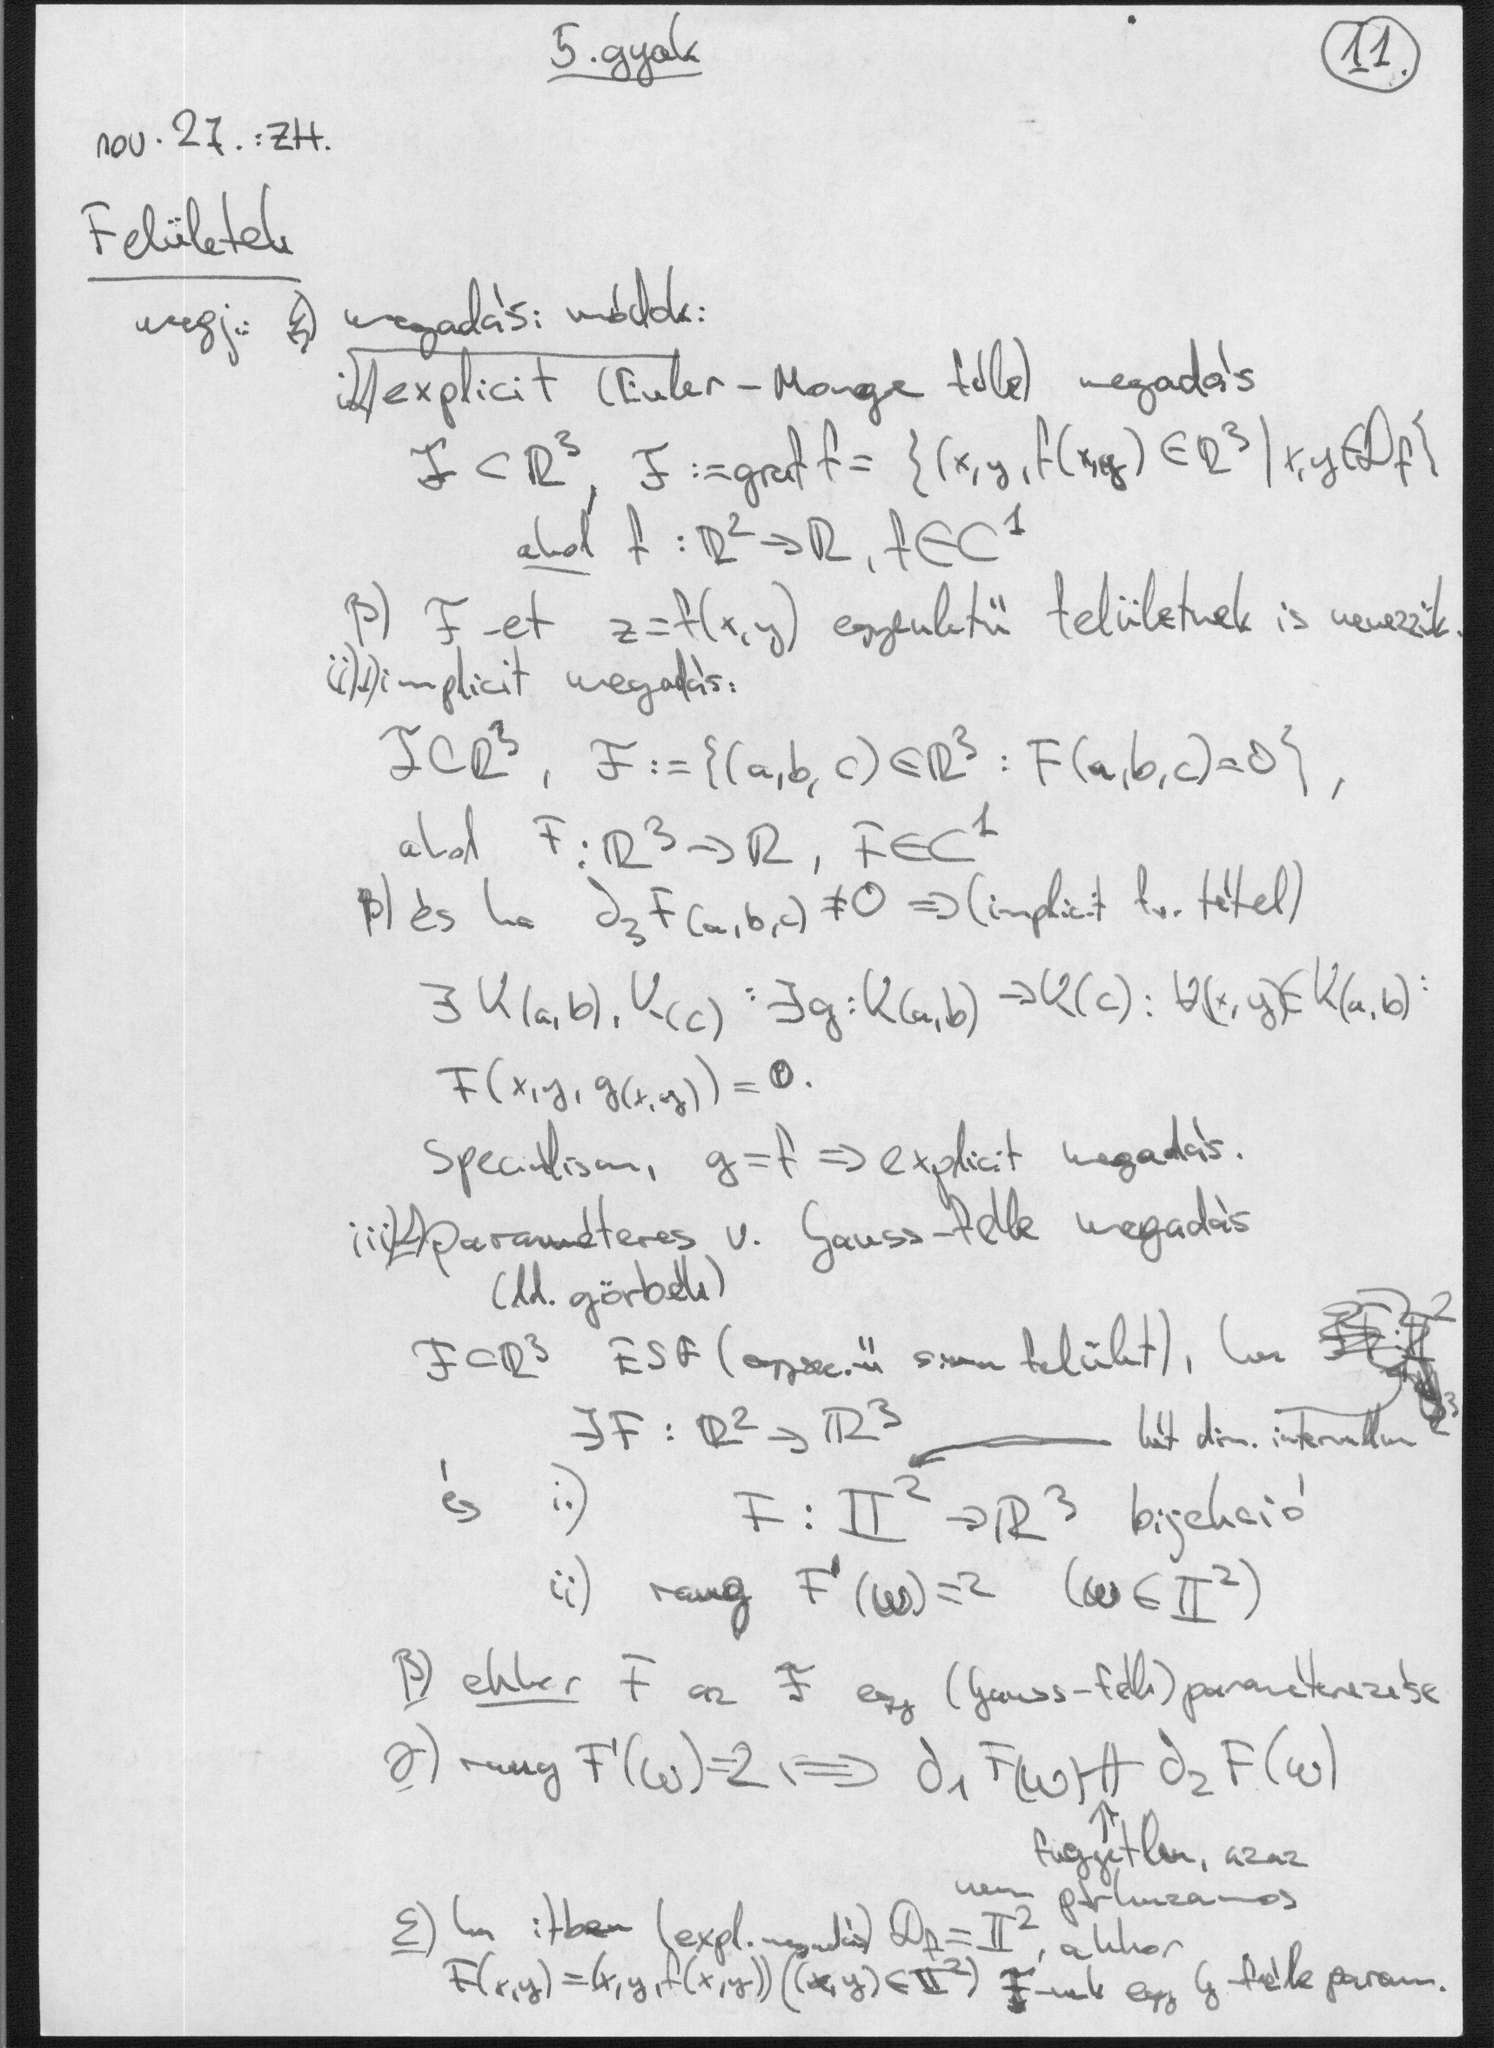 5. gyak
11.
nov. 27. : ZH.
Felületek
megj.: megadási módok:
i) explicit (Euler-Monge féle) megadás
F ⊂ ℝ³, F := graf f = {(x,y,f(x,y) ∈ ℝ³ | x,y ∈ D_f}
ahol f : ℝ² → ℝ, f ∈ C¹
β) F-et z = f(x,y) egyenletű felületnek is nevezzük.
ii) implicit megadás:
F ⊂ ℝ³, F := {(a,b,c) ∈ ℝ³ : F(a,b,c) = 0},
ahol F : ℝ³ → ℝ, F ∈ C¹
β) és ha ∂₃F(a,b,c) ≠ 0 ⇒ (implicit fv. tétel)
∃ K(a,b), K(c) : ∃ g : K(a,b) → K(c) : ∀(x,y) ∈ K(a,b) :
F(x,y,g(x,y)) = 0.
Speciálisan, g = f ⇒ explicit megadás.
iii) paraméteres v. Gauss-féle megadás
(ld. görbék)
F ⊂ ℝ³ ESF (egysz.ű sima felület), ha
∃F : ℝ² → ℝ³ két dim. intervallum
és i.) F : II² → ℝ³ bijekció
ii) rang F'(ω) = 2 (ω ∈ II²)
β) ekkor F az F egy (Gauss-féle) paraméterezése
γ) rang F'(ω) = 2 ⟺ ∂₁F(ω) ∦ ∂₂F(ω)
↑
független, azaz
nem párhuzamos
ε) ha i)-ben (expl. megadás) D_f = II², akkor
F(x,y) = (x,y,f(x,y)) ((x,y) ∈ II²) F-nek egy G-féle param.